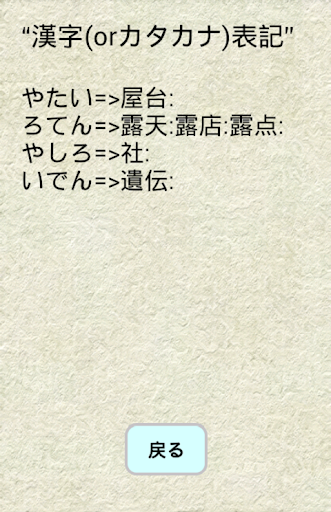 “漢字(orカタカナ)表記”
やたい=>屋台:
ろてん=>露天:露店:露点:
やしろ=>社:
いでん=>遺伝:
戻る